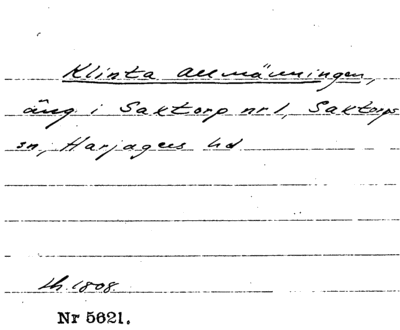 Klinta allmänningen,
äng i Saxtorp nr 1, Saxtorps
sn, Harjagers hd
Lh. 1808.
Nr 5621.